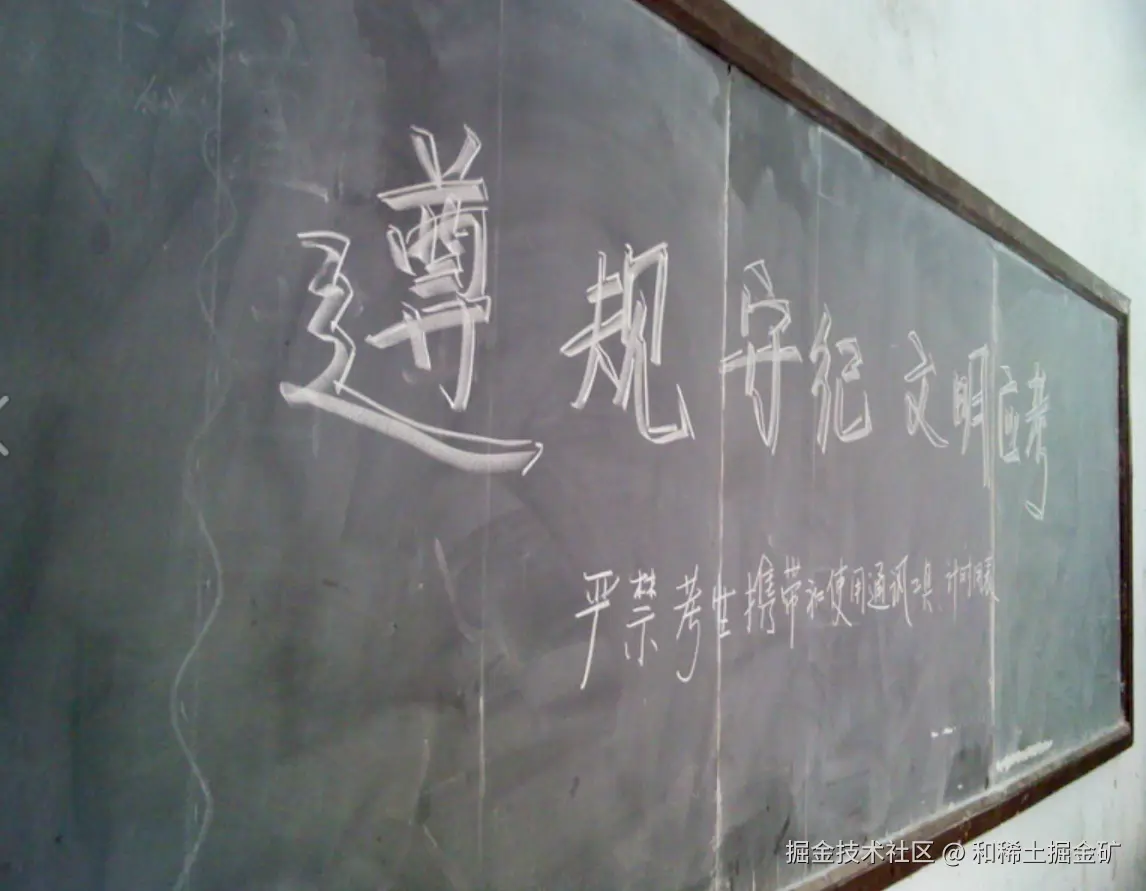 遵规守纪 文明应考
严禁考生携带和使用通讯工具、计时用表
掘金技术社区 @ 和稀土掘金矿